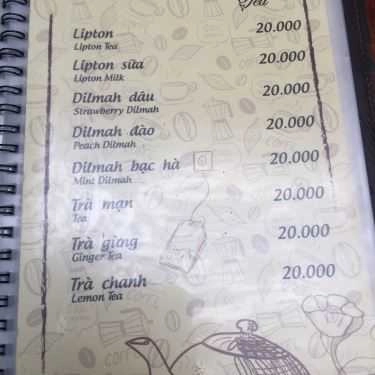 Tea
Lipton 20.000
Lipton Tea
Lipton sữa 20.000
Lipton Milk
Dilmah dâu 20.000
Strawberry Dilmah
Dilmah đào 20.000
Peach Dilmah
Dilmah bạc hà 20.000
Mint Dilmah
Trà mạn 20.000
Tea
Trà gừng 20.000
Ginger Tea
Trà chanh 20.000
Lemon Tea